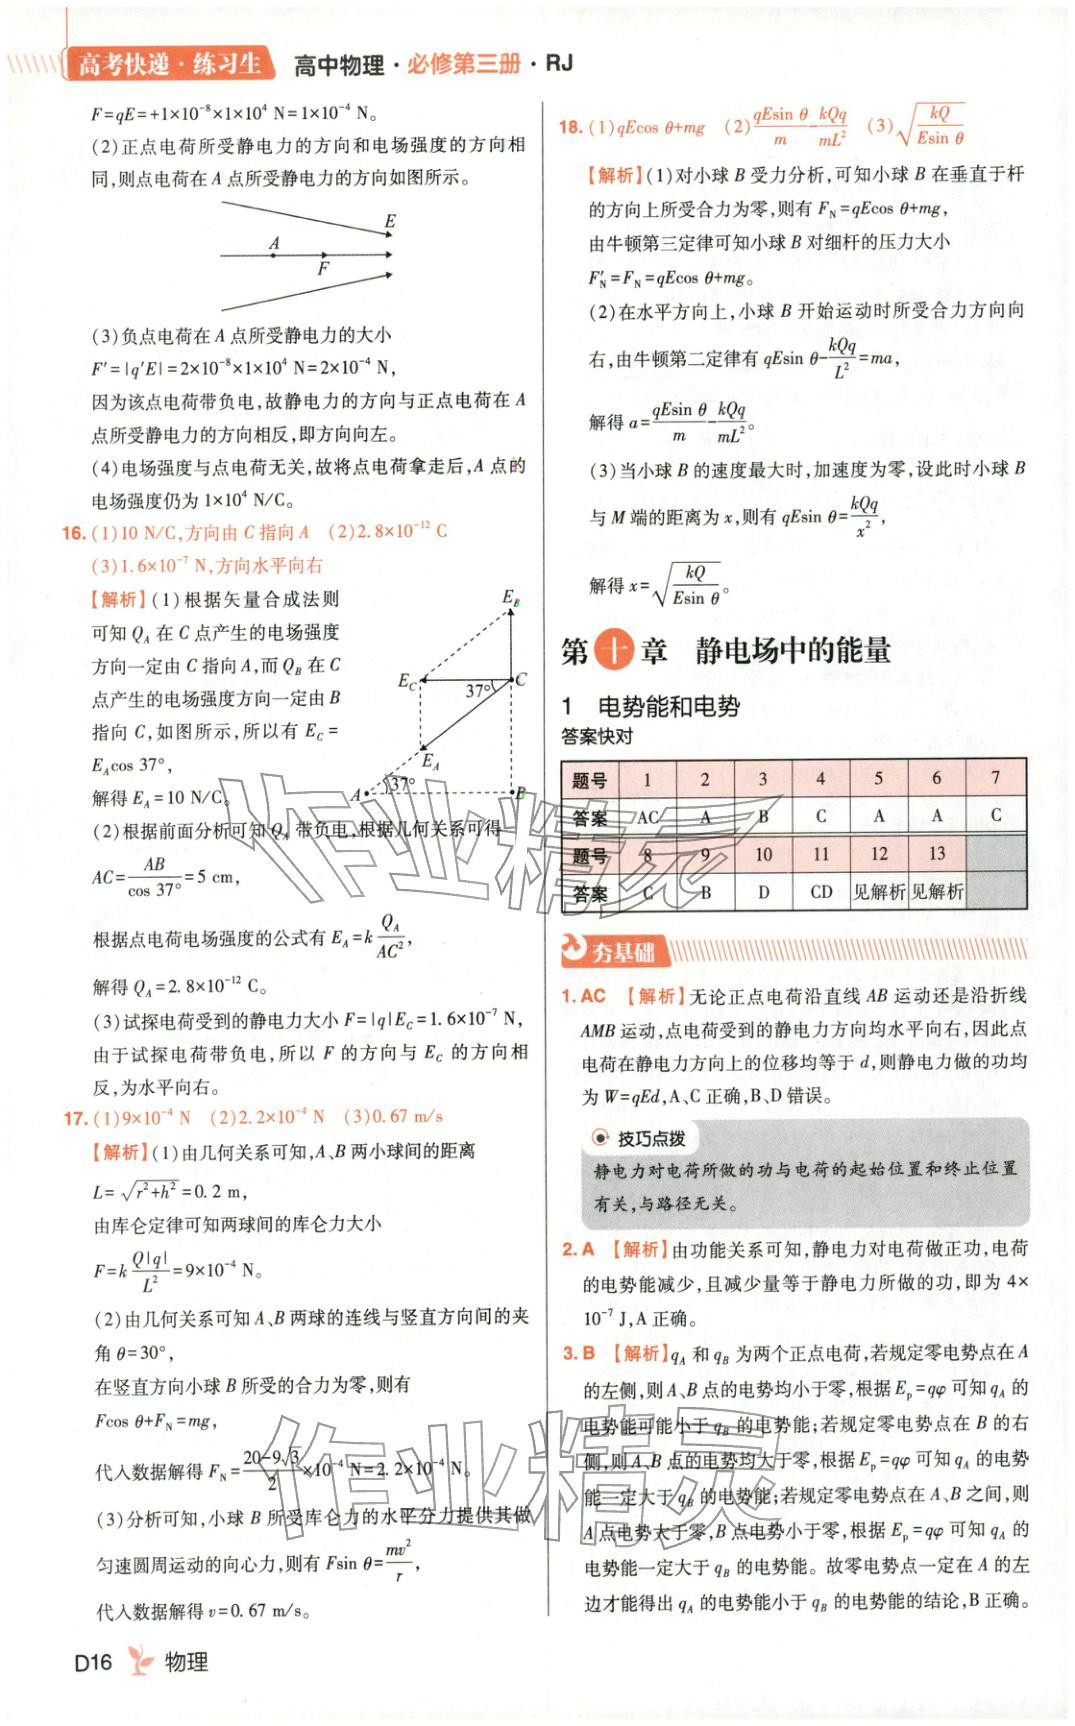 高考快递·练习生 高中物理·必修第三册·RJ
F=qE=+1×10⁻⁸×1×10⁴ N=1×10⁻⁴ N。
(2)正点电荷所受静电力的方向和电场强度的方向相
同,则点电荷在 A 点所受静电力的方向如图所示。
E
A
F
(3)负点电荷在 A 点所受静电力的大小
F′=|q′E|=2×10⁻⁸×1×10⁴ N=2×10⁻⁴ N,
因为该点电荷带负电,故静电力的方向与正点电荷在 A
点所受静电力的方向相反,即方向向左。
(4)电场强度与点电荷无关,故将点电荷拿走后,A 点的
电场强度仍为 1×10⁴ N/C。
16. (1)10 N/C,方向由 C 指向 A (2)2.8×10⁻¹² C
(3)1.6×10⁻⁷ N,方向水平向右
【解析】(1)根据矢量合成法则
可知 Q_A 在 C 点产生的电场强度
方向一定由 C 指向 A,而 Q_B 在 C
点产生的电场强度方向一定由 B
指向 C,如图所示,所以有 E_C=
E_A cos 37°,
解得 E_A=10 N/C。
E_B
E_C 37° C
E_A
A 37° B
(2)根据前面分析可知 Q_A 带负电,根据几何关系可得
AC=AB/cos 37°=5 cm,
根据点电荷电场强度的公式有 E_A=k Q_A/AC²,
解得 Q_A=2.8×10⁻¹² C。
(3)试探电荷受到的静电力大小 F=|q|E_C=1.6×10⁻⁷ N,
由于试探电荷带负电,所以 F 的方向与 E_C 的方向相
反,为水平向右。
17. (1)9×10⁻⁴ N (2)2.2×10⁻⁴ N (3)0.67 m/s
【解析】(1)由几何关系可知,A、B 两小球间的距离
L=√(r²+h²)=0.2 m,
由库仑定律可知两球间的库仑力大小
F=k Q|q|/L²=9×10⁻⁴ N。
(2)由几何关系可知 A、B 两球的连线与竖直方向间的夹
角 θ=30°,
在竖直方向小球 B 所受的合力为零,则有
Fcos θ+F_N=mg,
代入数据解得 F_N=(20-9√3)/2×10⁻⁴ N=2.2×10⁻⁴ N。
(3)分析可知,小球 B 所受库仑力的水平分力提供其做
匀速圆周运动的向心力,则有 Fsin θ=mv²/r,
代入数据解得 v=0.67 m/s。
18. (1)qEcos θ+mg (2)qEsin θ/m-kQq/mL² (3)√(kQ/Esin θ)
【解析】(1)对小球 B 受力分析,可知小球 B 在垂直于杆
的方向上所受合力为零,则有 F_N=qEcos θ+mg,
由牛顿第三定律可知小球 B 对细杆的压力大小
F′_N=F_N=qEcos θ+mg。
(2)在水平方向上,小球 B 开始运动时所受合力方向向
右,由牛顿第二定律有 qEsin θ-kQq/L²=ma,
解得 a=qEsin θ/m-kQq/mL²。
(3)当小球 B 的速度最大时,加速度为零,设此时小球 B
与 M 端的距离为 x,则有 qEsin θ=kQq/x²,
解得 x=√(kQ/Esin θ)。
第十章 静电场中的能量
1 电势能和电势
答案快对
题号 1 2 3 4 5 6 7
答案 AC A B C A A C
题号 8 9 10 11 12 13
答案 C B D CD 见解析 见解析
夯基础
1. AC 【解析】无论正点电荷沿直线 AB 运动还是沿折线
AMB 运动,点电荷受到的静电力方向均水平向右,因此点
电荷在静电力方向上的位移均等于 d,则静电力做的功均
为 W=qEd,A、C 正确,B、D 错误。
技巧点拨
静电力对电荷所做的功与电荷的起始位置和终止位置
有关,与路径无关。
2. A 【解析】由功能关系可知,静电力对电荷做正功,电荷
的电势能减少,且减少量等于静电力所做的功,即为 4×
10⁻⁷ J,A 正确。
3. B 【解析】q_A 和 q_B 为两个正点电荷,若规定零电势点在 A
的左侧,则 A、B 点的电势均小于零,根据 E_p=qφ 可知 q_A 的
电势能可能小于 q_B 的电势能;若规定零电势点在 B 的右
侧,则 A、B 点的电势均大于零,根据 E_p=qφ 可知 q_A 的电势
能一定大于 q_B 的电势能;若规定零电势点在 A、B 之间,则
A 点电势大于零,B 点电势小于零,根据 E_p=qφ 可知 q_A 的
电势能一定大于 q_B 的电势能。故零电势点一定在 A 的左
边才能得出 q_A 的电势能小于 q_B 的电势能的结论,B 正确。
作业精灵
作业精灵
D16 物理